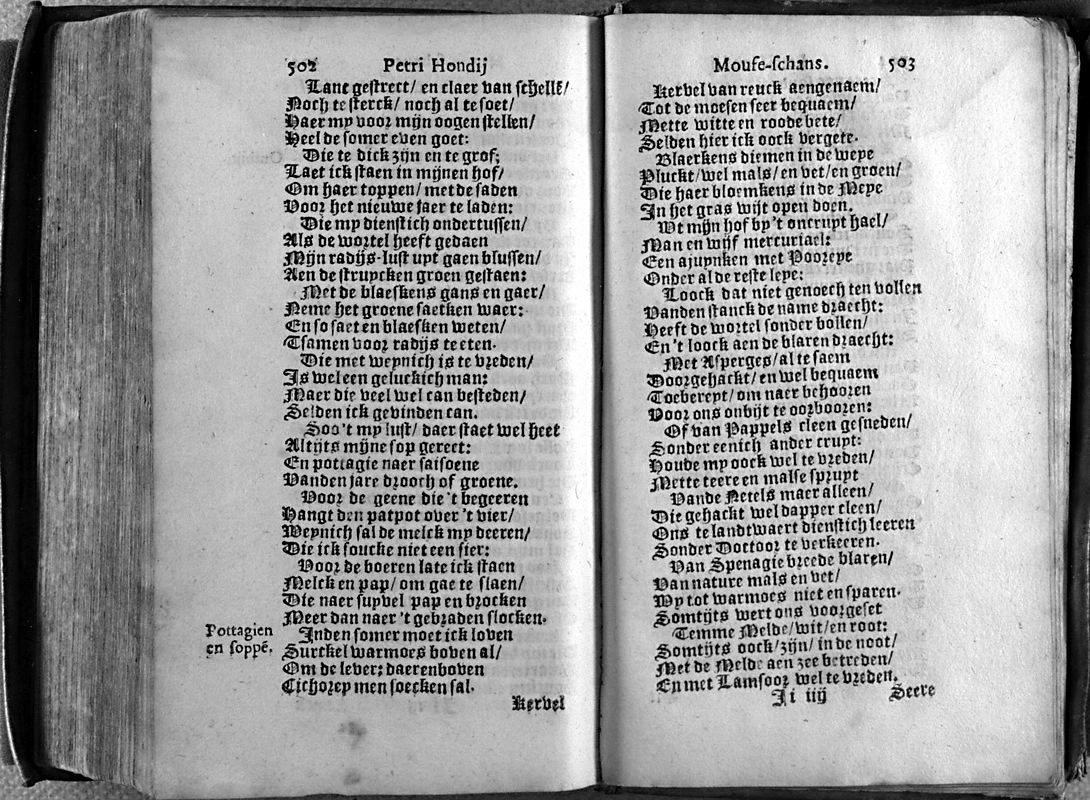 502 Petri Hondij
Lanc gestrect/ en claer van schelle/
Noch te sterck/ noch al te soet/
Haer my voor mijn oogen stellen/
Heel de somer even goet:
Die te dick zijn en te grof;
Laet ick staen in mijnen hof/
Om haer toppen/ met de saden
Voor het nieuwe jaer te laden:
Die my dienstich ondertussen/
Als de wortel heeft gedaen
Mijn radijs-lust uyt gaen blussen/
Aen de struycken groen gestaen:
Met de blaeskens gans en gaer/
Neme het groene saetken waer:
En so saet en blaesken weten/
Tsamen voor radijs te eten.
Die met weynich is te vreden/
Is wel een geluckich man:
Maer die veel wel can besteden/
Selden ick gevinden can.
Soo't my lust/ daer staet wel heet
Altijts mijne sop gereet:
En pottagie naer saisoene
Vanden jare drooch of groene.
Voor de geene die 't begeeren
Hangt den patpot over 't vier/
Weynich sal de melck my deeren/
Die ick soucke niet een sier:
Voor de boeren late ick staen
Melck en pap/ om gae te slaen/
Die naer suyvel pap en brocken
Meer dan naer 't gebraden slocken.
Pottagien en soppē.
Inden somer moet ick loven
Surckel warmoes boven al/
Om de lever; daerenboven
Cichorey men soecken sal.
Kervel
Mouse-schans. 503
Kervel van reuck aengenaem/
Tot de moesen seer bequaem/
Mette witte en roode bete/
Selden hier ick oock vergete.
Blaerkens diemen in de weye
Pluckt/ wel mals/ en vet/ en groen/
Die haer bloemkens in de Meye
In het gras wijt open doen.
Wt mijn hof by't oncruyt hael/
Man en wijf mercuriael:
Een ajuynken met Pooreye
Onder al de reste leye:
Loock dat niet genoech ten vollen
Vanden stanck de name draecht:
Heeft de wortel sonder bollen/
En 't loock aen de blaren draecht:
Met Asperges/ al te saem
Doorgehackt/ en wel bequaem
Toebereyt/ om naer behooren
Voor ons onbijt te oorbooren:
Of van Pappels cleen gesneden/
Sonder eenich ander cruyt:
Houde my oock wel te vreden/
Mette teere en malse spruyt
Vande Netels maer alleen/
Die gehackt wel dapper cleen/
Ons te landtwaert dienstich leeren
Sonder Doctoor te verkeeren.
Van Spenagie breede blaren/
Van nature mals en vet/
Wy tot warmoes niet en sparen.
Somtijts wert ons voorgeset
Temme Melde/ wit/ en root:
Somtijts oock/ zijn/ in de noot/
Met de Melde aen zee betreden/
En met Lamsoor wel te vreden.
Ii iiij Seere